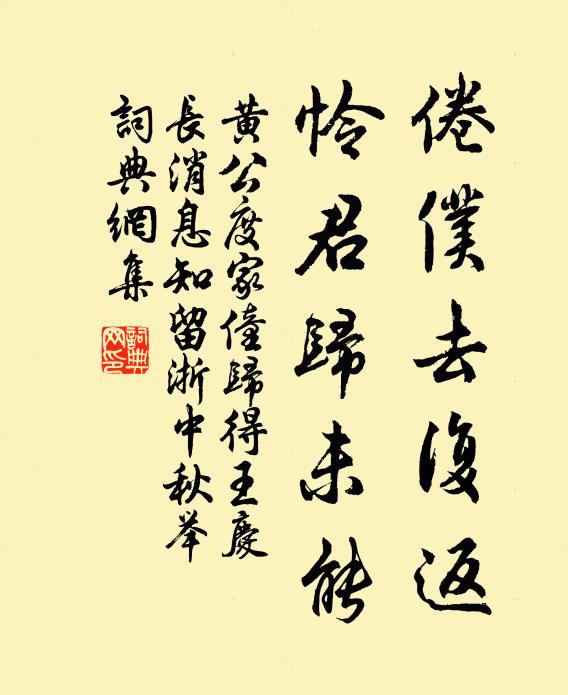 倦僕去復返
怜君歸未能
黃公度家僮歸得王慶
長消息知留浙中秋举
詞典網集
詞典网印